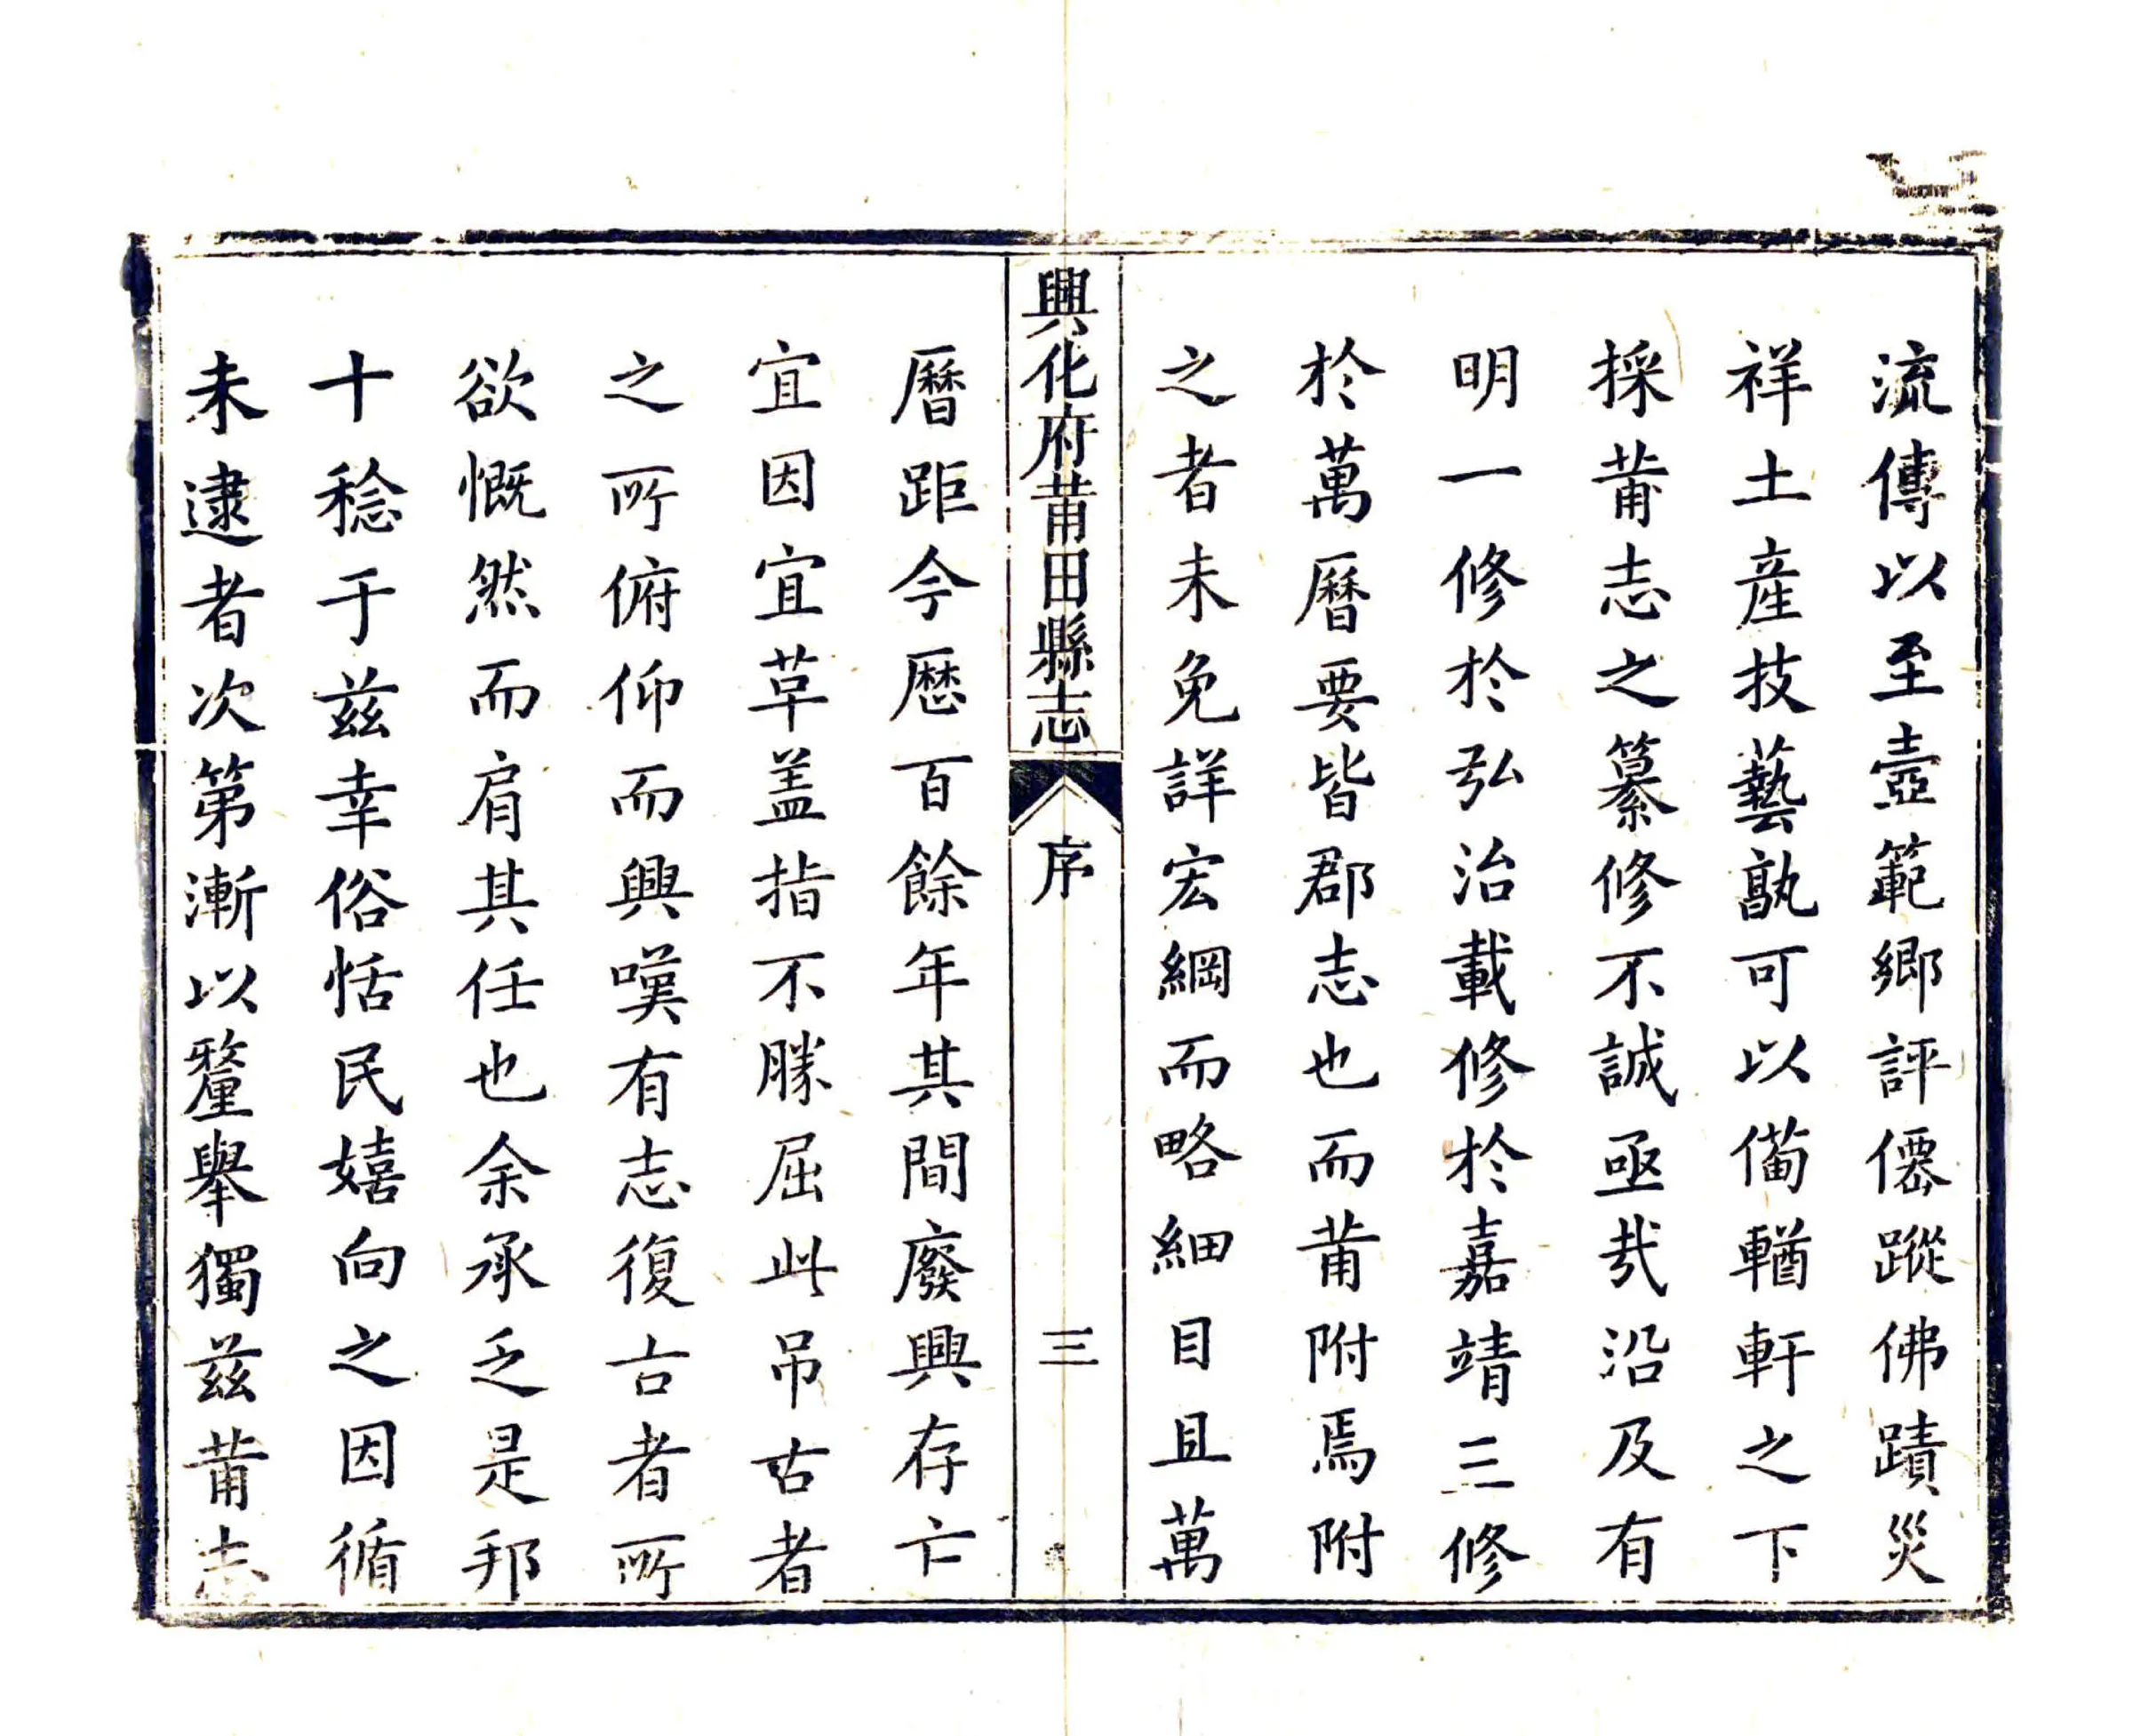 流傳以至壼範鄉評僊蹤佛蹟災
祥土産技藝孰可以俻輶軒之下
採莆志之纂修不誠亟㢤沿及有
明一修於弘治載修於嘉靖三修
於萬曆要皆郡志也而莆附焉附
之者未免詳宏綱而略細目且萬
興化府莆田縣志
序
三
曆距今歴百餘年其間廢興存亡
宜因宜革盖指不勝屈此吊古者
之所俯仰而興嘆有志復古者所
欲慨然而肩其任也余承乏是邦
十稔于兹幸俗恬民嬉向之因循
未逮者次第漸以釐舉獨兹莆志